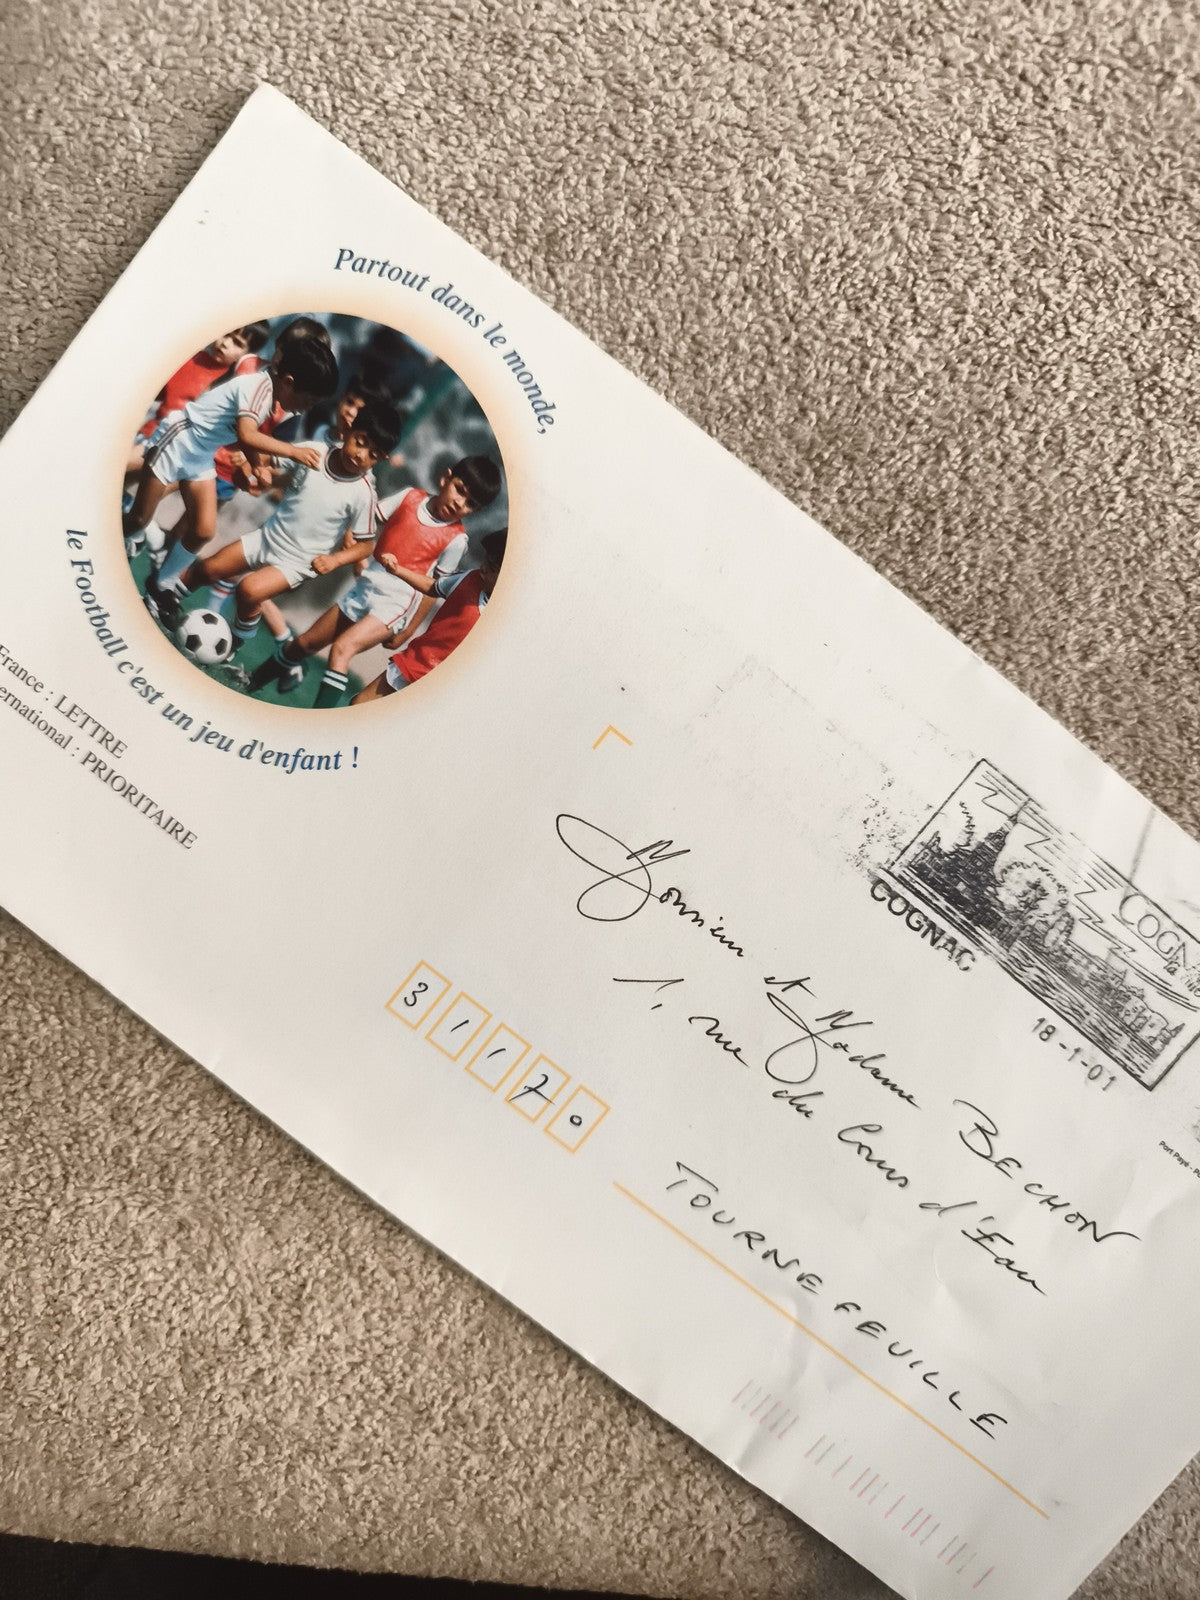 Partout dans le monde,
le Football c'est un jeu d'enfant !
France : LETTRE
ernational : PRIORITAIRE
COGNAC
COGN
18-1-01
Port Payé - P
Monsieur et Madame BECHON
1, rue du Cours d'Eau
31170
TOURNEFEUILLE